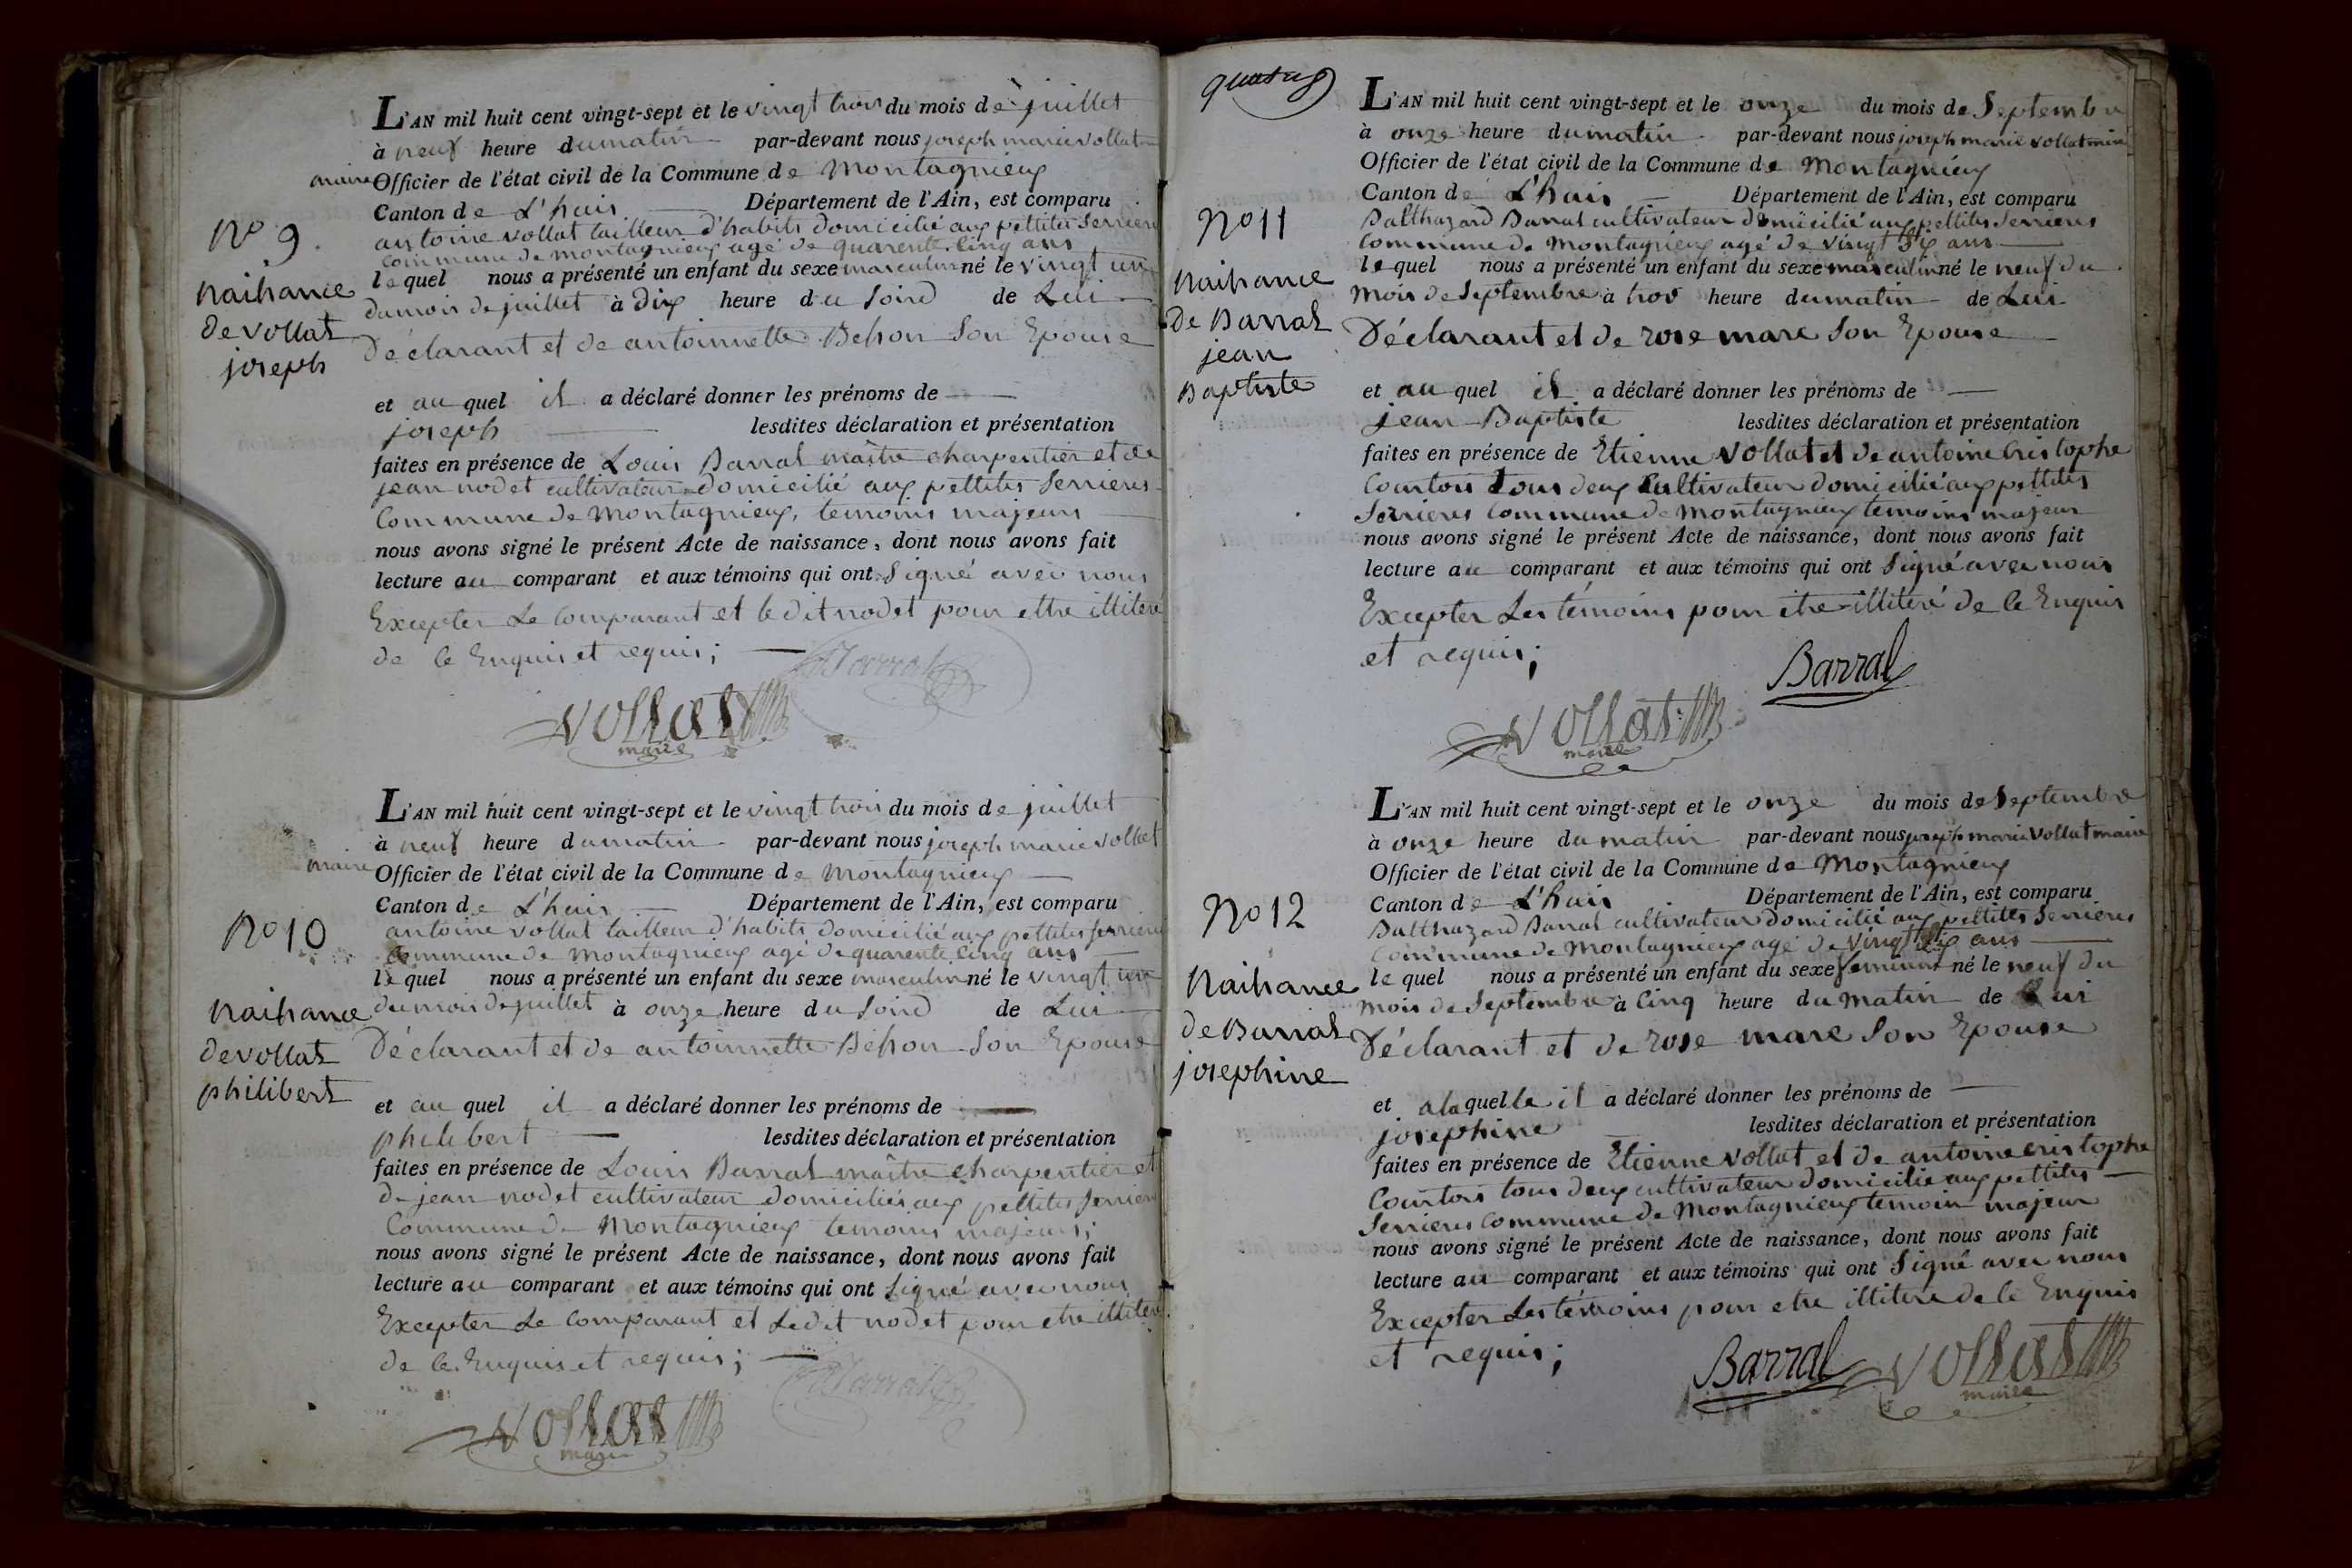 L'AN mil huit cent vingt-sept et le vingt trois du mois de juillet
à neuf heure dumatin par-devant nous joseph marie vollat
maire Officier de l'état civil de la Commune de Montagnieux
Canton de L'huis Département de l'Ain, est comparu
antoine vollat tailleur d'habits domicilié aux pettites Serrieres
commune de montagnieux agé de quarente cinq ans
lequel nous a présenté un enfant du sexe masculin né le vingt un
dumois de juillet à dix heure du soird de Lui
Déclarant et de antoinnette Behon Son Epouse
et au quel il a déclaré donner les prénoms de
joseph lesdites déclaration et présentation
faites en présence de Louis Barral maitre charpentier et de
jean nodet cultivateur domicilié aux pettites Serrieres
Commune de Montagnieux, temoins majeurs
nous avons signé le présent Acte de naissance, dont nous avons fait
lecture au comparant et aux témoins qui ont Signé avec nous
Excepter Le comparant et le dit nodet pour ettre illiteré
de ce Enquis et requis;
Barral
vollat
maire
No 9.
Naihance
de vollat
joseph
L'AN mil huit cent vingt-sept et le vingt trois du mois de juillet
à neuf heure dumatin par-devant nous joseph marie vollat
maire Officier de l'état civil de la Commune de Montagnieux
Canton de L'huis Département de l'Ain, est comparu
antoine vollat tailleur d'habits domicilié aux pettites serrieres
Commune de Montagnieux agé de quarente cinq ans
lequel nous a présenté un enfant du sexe masculin né le vingt un
dumois de juillet à onze heure du soird de Lui
Déclarant et de antoinnette Behon Son Epouse
et au quel il a déclaré donner les prénoms de
philibert lesdites déclaration et présentation
faites en présence de Louis Barral maitre charpentier et
de jean nodet cultivateur domiciliés aux pettites Serrieres
Commune de Montagnieux temoins majeurs;
nous avons signé le présent Acte de naissance, dont nous avons fait
lecture au comparant et aux témoins qui ont Signé avec nous
Excepter Le comparant et Ledit nodet pour etre illiteré
de ce Enquis et requis;
Barral
vollat
maire
No 10
Naihance
de vollat
philibert
L'AN mil huit cent vingt-sept et le onze du mois de Septembre
à onze heure dumatin par-devant nous joseph marie vollat maire
Officier de l'état civil de la Commune de Montagnieux
Canton de L'huis Département de l'Ain, est comparu
Balthazard Barral cultivateur domicilié aux pettites Serrieres
Commune de Montagnieux agé de vingt six ans
lequel nous a présenté un enfant du sexe masculin né le neuf du
mois de Septembre à trois heure dumatin de Lui
Déclarant et de rose mare Son Epouse
et au quel il a déclaré donner les prénoms de
jean Baptiste lesdites déclaration et présentation
faites en présence de Etienne vollat et de antoine cristophe
Courtois tous deux Cultivateur domicilié aux pettites
Serrieres commune de Montagnieux temoins majeur
nous avons signé le présent Acte de naissance, dont nous avons fait
lecture au comparant et aux témoins qui ont Signé avec nous
Excepter Les témoins pour etre illiteré de ce Enquis
et requis;
Barral
vollat
maire
No 11
Naihance
de Barral
jean
Baptiste
L'AN mil huit cent vingt-sept et le onze du mois de Septembre
à onze heure du matin par-devant nous joseph marie vollat maire
Officier de l'état civil de la Commune de Montagnieux
Canton de L'huis Département de l'Ain, est comparu
Balthazard Barral cultivateur domicilié aux pettites Serrieres
Commune de Montagnieux agé de vingt six ans
lequel nous a présenté un enfant du sexe feminin né le neuf du
mois de Septembre à cinq heure du matin de Lui
Déclarant et de rose mare Son Epouse
et alaquelle il a déclaré donner les prénoms de
josephine lesdites déclaration et présentation
faites en présence de Etienne vollat et de antoine cristophe
Courtois tous deux cultivateur domicilié aux pettites
Serrieres commune de Montagnieux temoin majeur
nous avons signé le présent Acte de naissance, dont nous avons fait
lecture au comparant et aux témoins qui ont Signé avec nous
Excepter Les témoins pour etre illiteré de ce Enquis
et requis;
Barral vollat
maire
No 12
Naihance
de Barral
josephine